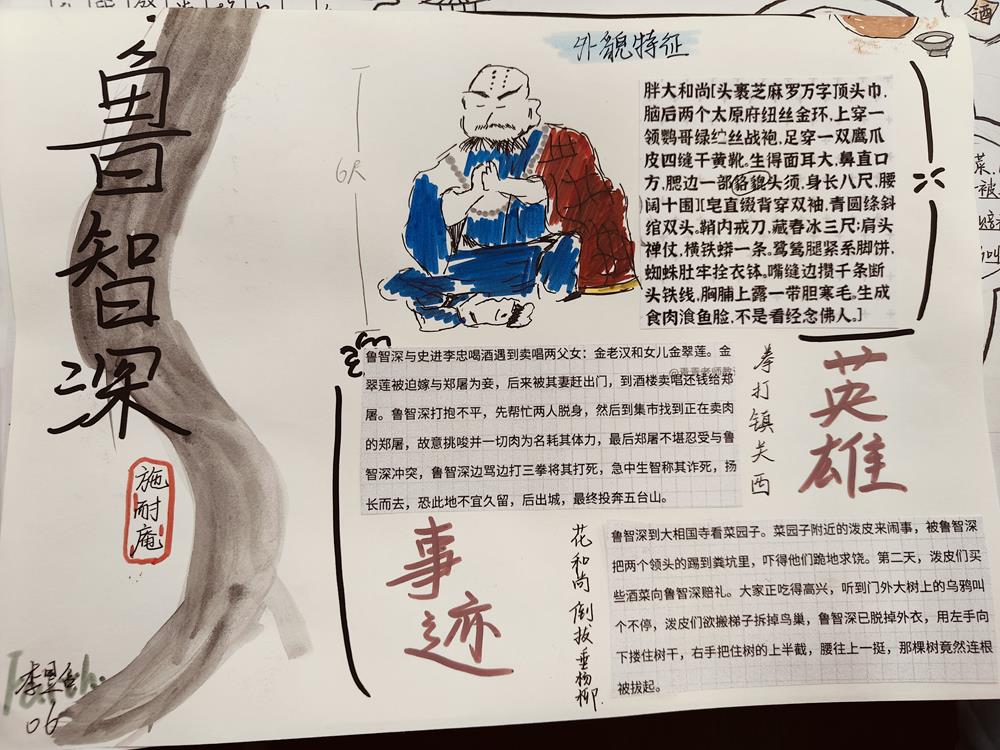 鲁智深
施耐庵
06
外貌特征
6尺
胖大和尚[头裹芝麻罗万字顶头巾,
脑后两个太原府纽丝金环,上穿一
领鹦哥绿纻丝战袍,足穿一双鹰爪
皮四缝干黄靴。生得面耳大,鼻直口
方,腮边一部貉貗头须,身长八尺,腰
阔十围][皂直缀背穿双袖,青圆绦斜
绾双头。鞘内戒刀,藏春冰三尺;肩头
禅仗,横铁蟒一条。鹭鸶腿紧系脚饼,
蜘蛛肚牢拴衣钵。嘴缝边攒千条断
头铁线,胸脯上露一带胆寒毛。生成
食肉飡鱼脸,不是看经念佛人。]
鲁智深与史进李忠喝酒遇到卖唱两父女：金老汉和女儿金翠莲。金
翠莲被迫嫁与郑屠为妾，后来被其妻赶出门，到酒楼卖唱还钱给郑
屠。鲁智深打抱不平，先帮忙两人脱身，然后到集市找到正在卖肉
的郑屠，故意挑唆并一切肉为名耗其体力，最后郑屠不堪忍受与鲁
智深冲突，鲁智深边骂边打三拳将其打死，急中生智称其诈死，扬
长而去，恐此地不宜久留，后出城，最终投奔五台山。
拳打镇关西
英雄
事迹
花和尚倒拔垂杨柳
鲁智深到大相国寺看菜园子。菜园子附近的泼皮来闹事，被鲁智深
把两个领头的踢到粪坑里，吓得他们跪地求饶。第二天，泼皮们买
些酒菜向鲁智深赔礼。大家正吃得高兴，听到门外大树上的乌鸦叫
个不停，泼皮们欲搬梯子拆掉鸟巢，鲁智深已脱掉外衣，用左手向
下搂住树干，右手把住树的上半截，腰往上一挺，那棵树竟然连根
被拔起。
酒